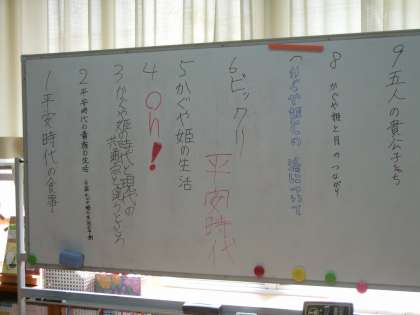 1 平安時代の食事
2 平安時代の貴族の生活
3 かぐや姫の時代と現代の共通点と違うところ
4 Oh!
5 かぐや姫の生活
6 ビックリ平安時代
8 かぐや姫と月のつながり
9 五人の貴公子たち